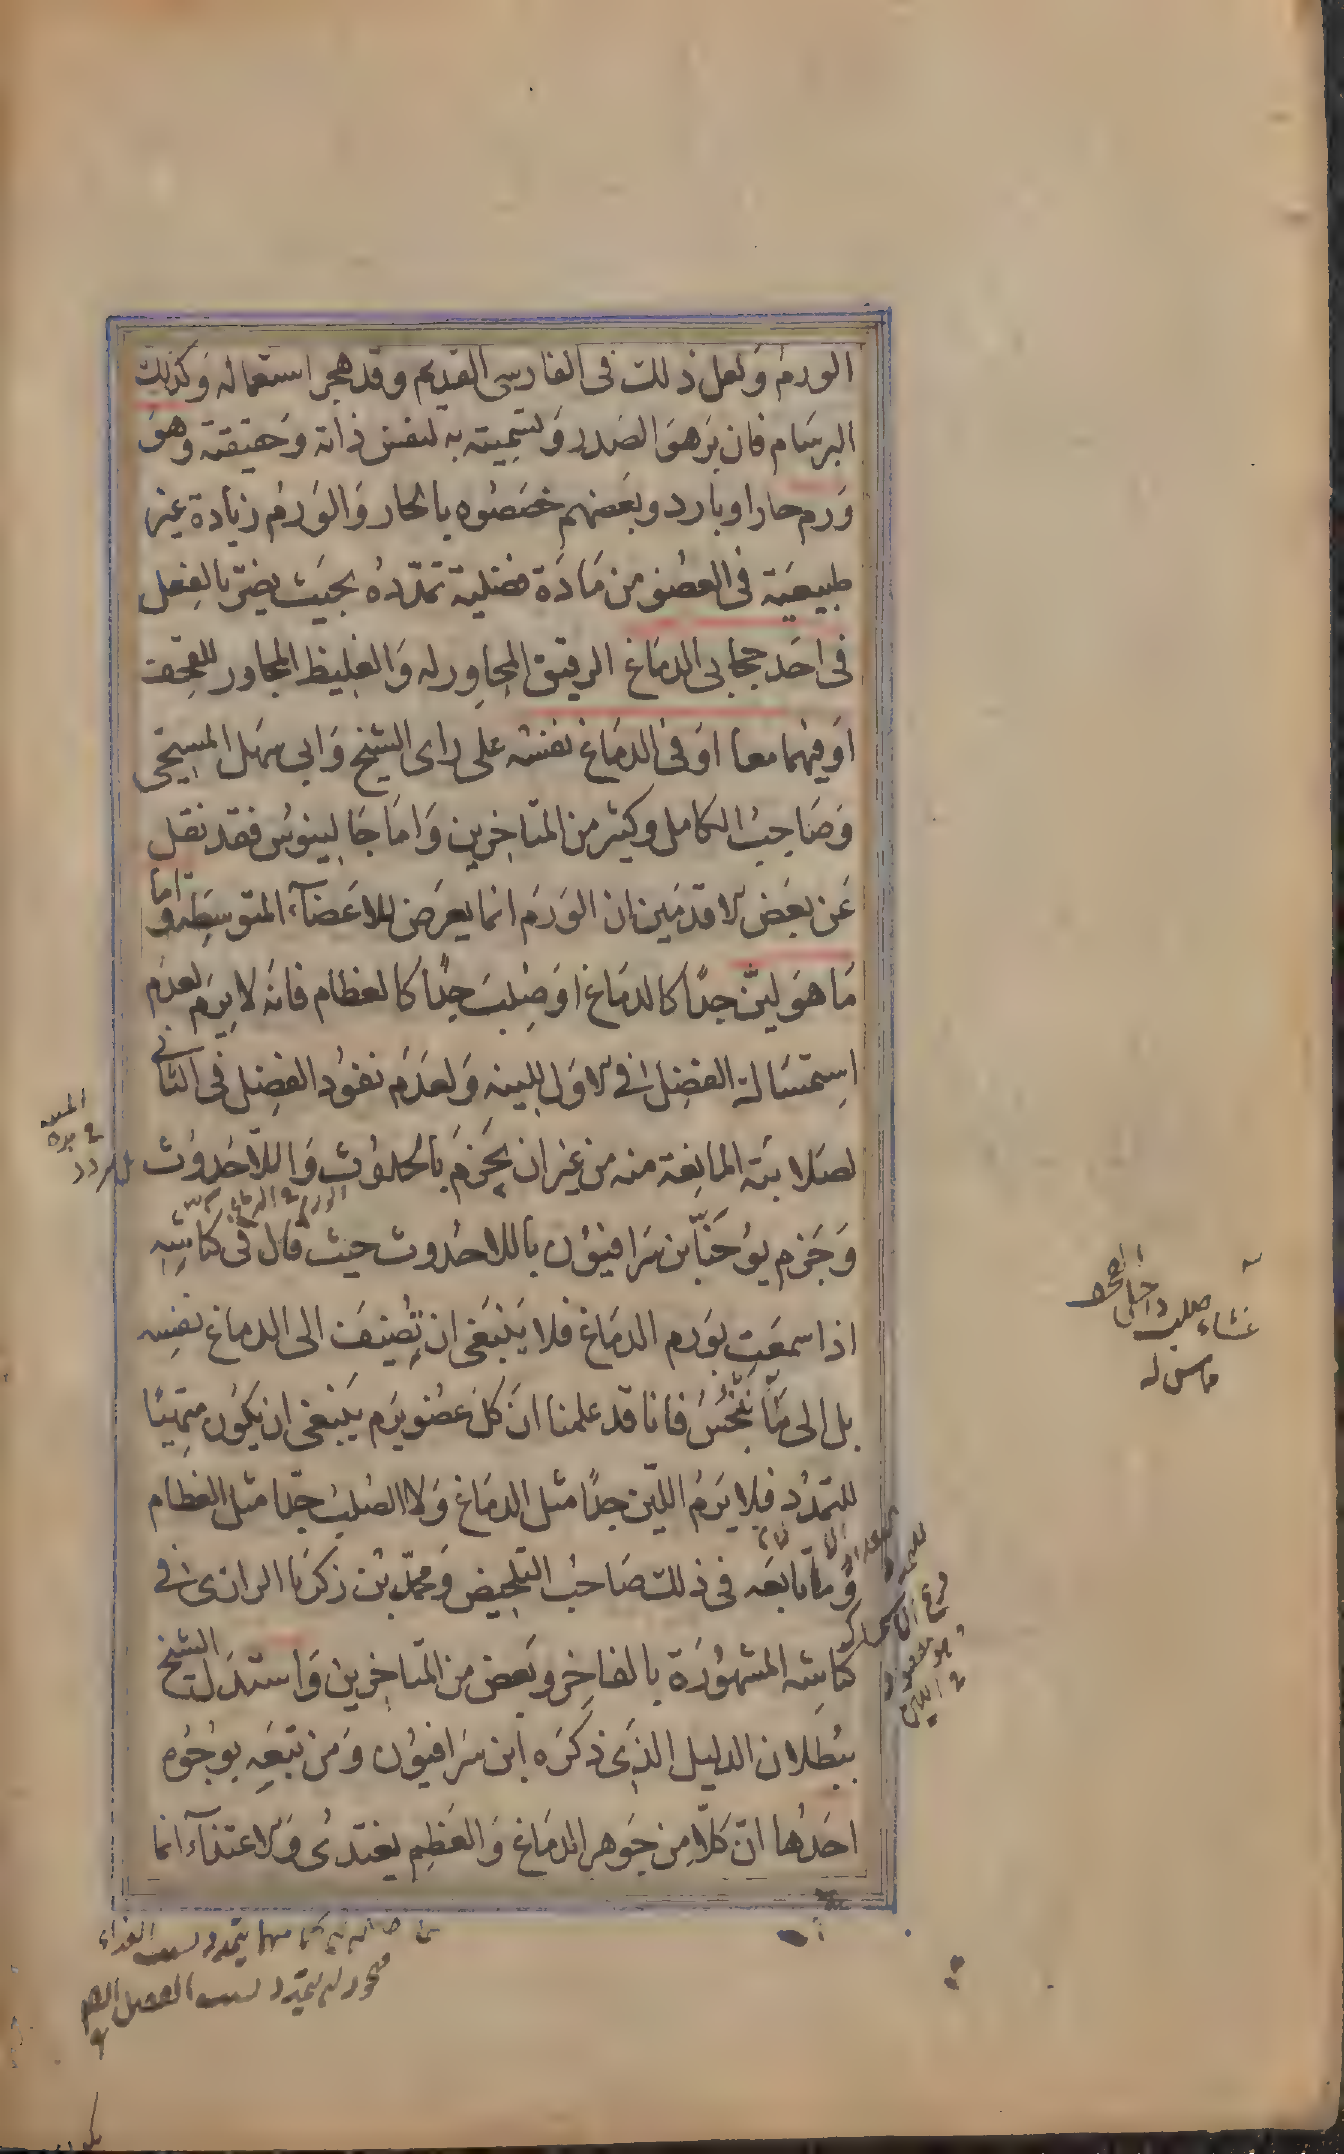 الورم ولعل ذلك في الفارسي القديم وقد هجر استعماله وكذلك
البرسام فان بَر هو الصدر وتسميته به لنفس ذاته وحقيقته وهو
ورم حار او بارد وبعضهم خصصوه بالحار والورم زيادة غير
طبيعية في العضو من مادة فضلية تمدده بحيث يضر بالفعل
في احد حجابي الدماغ الرقيق المجاور له والغليظ المجاور للقحف
او فيهما معا او في الدماغ نفسه على راى الشيخ وابي سهل المسيحي
وصاحب الكامل وكثير من المتاخرين واما جالينوس فقد نقل
عن بعض الاقدمين ان الورم انما يعرض للاعضآء المتوسطة واما
ما هو لين جدًا كالدماغ او صلب جدًا كالعظام فانه لا يرم لعدم
استمساك الفضل في الاول للينه ولعدم نفوذ الفضل في الثاني
لصلابته المانعة منه من غير ان يجزم بالحدوث واللاحدوث
وجزم يوحنا بن سرافيون باللاحدوث حيث قال في كناشه
اذا سمعت بورم الدماغ فلا ينبغي ان تضيف الى الدماغ نفسه
بل الى مانَنْجُس فانا قد علمنا ان كل عضو يرم ينبغي ان يكون متهيئا
للتمدد فلا يرم اللين جدًا مثل الدماغ ولا الصلب جدًا مثل العظام
وتابعه في ذلك صاحب التلخيص ومحمد بن زكريا الرازي في
كناشه المشهورة بالفاخر وبعض من المتاخرين واستدل الشيخ
ببطلان الدليل الذي ذكره ابن سرافيون ومن تبعه بوجوه
احدها ان كلا من جوهر الدماغ والعظم يغتذي والاغتذآء انما
غشاء صلب داخل القحف